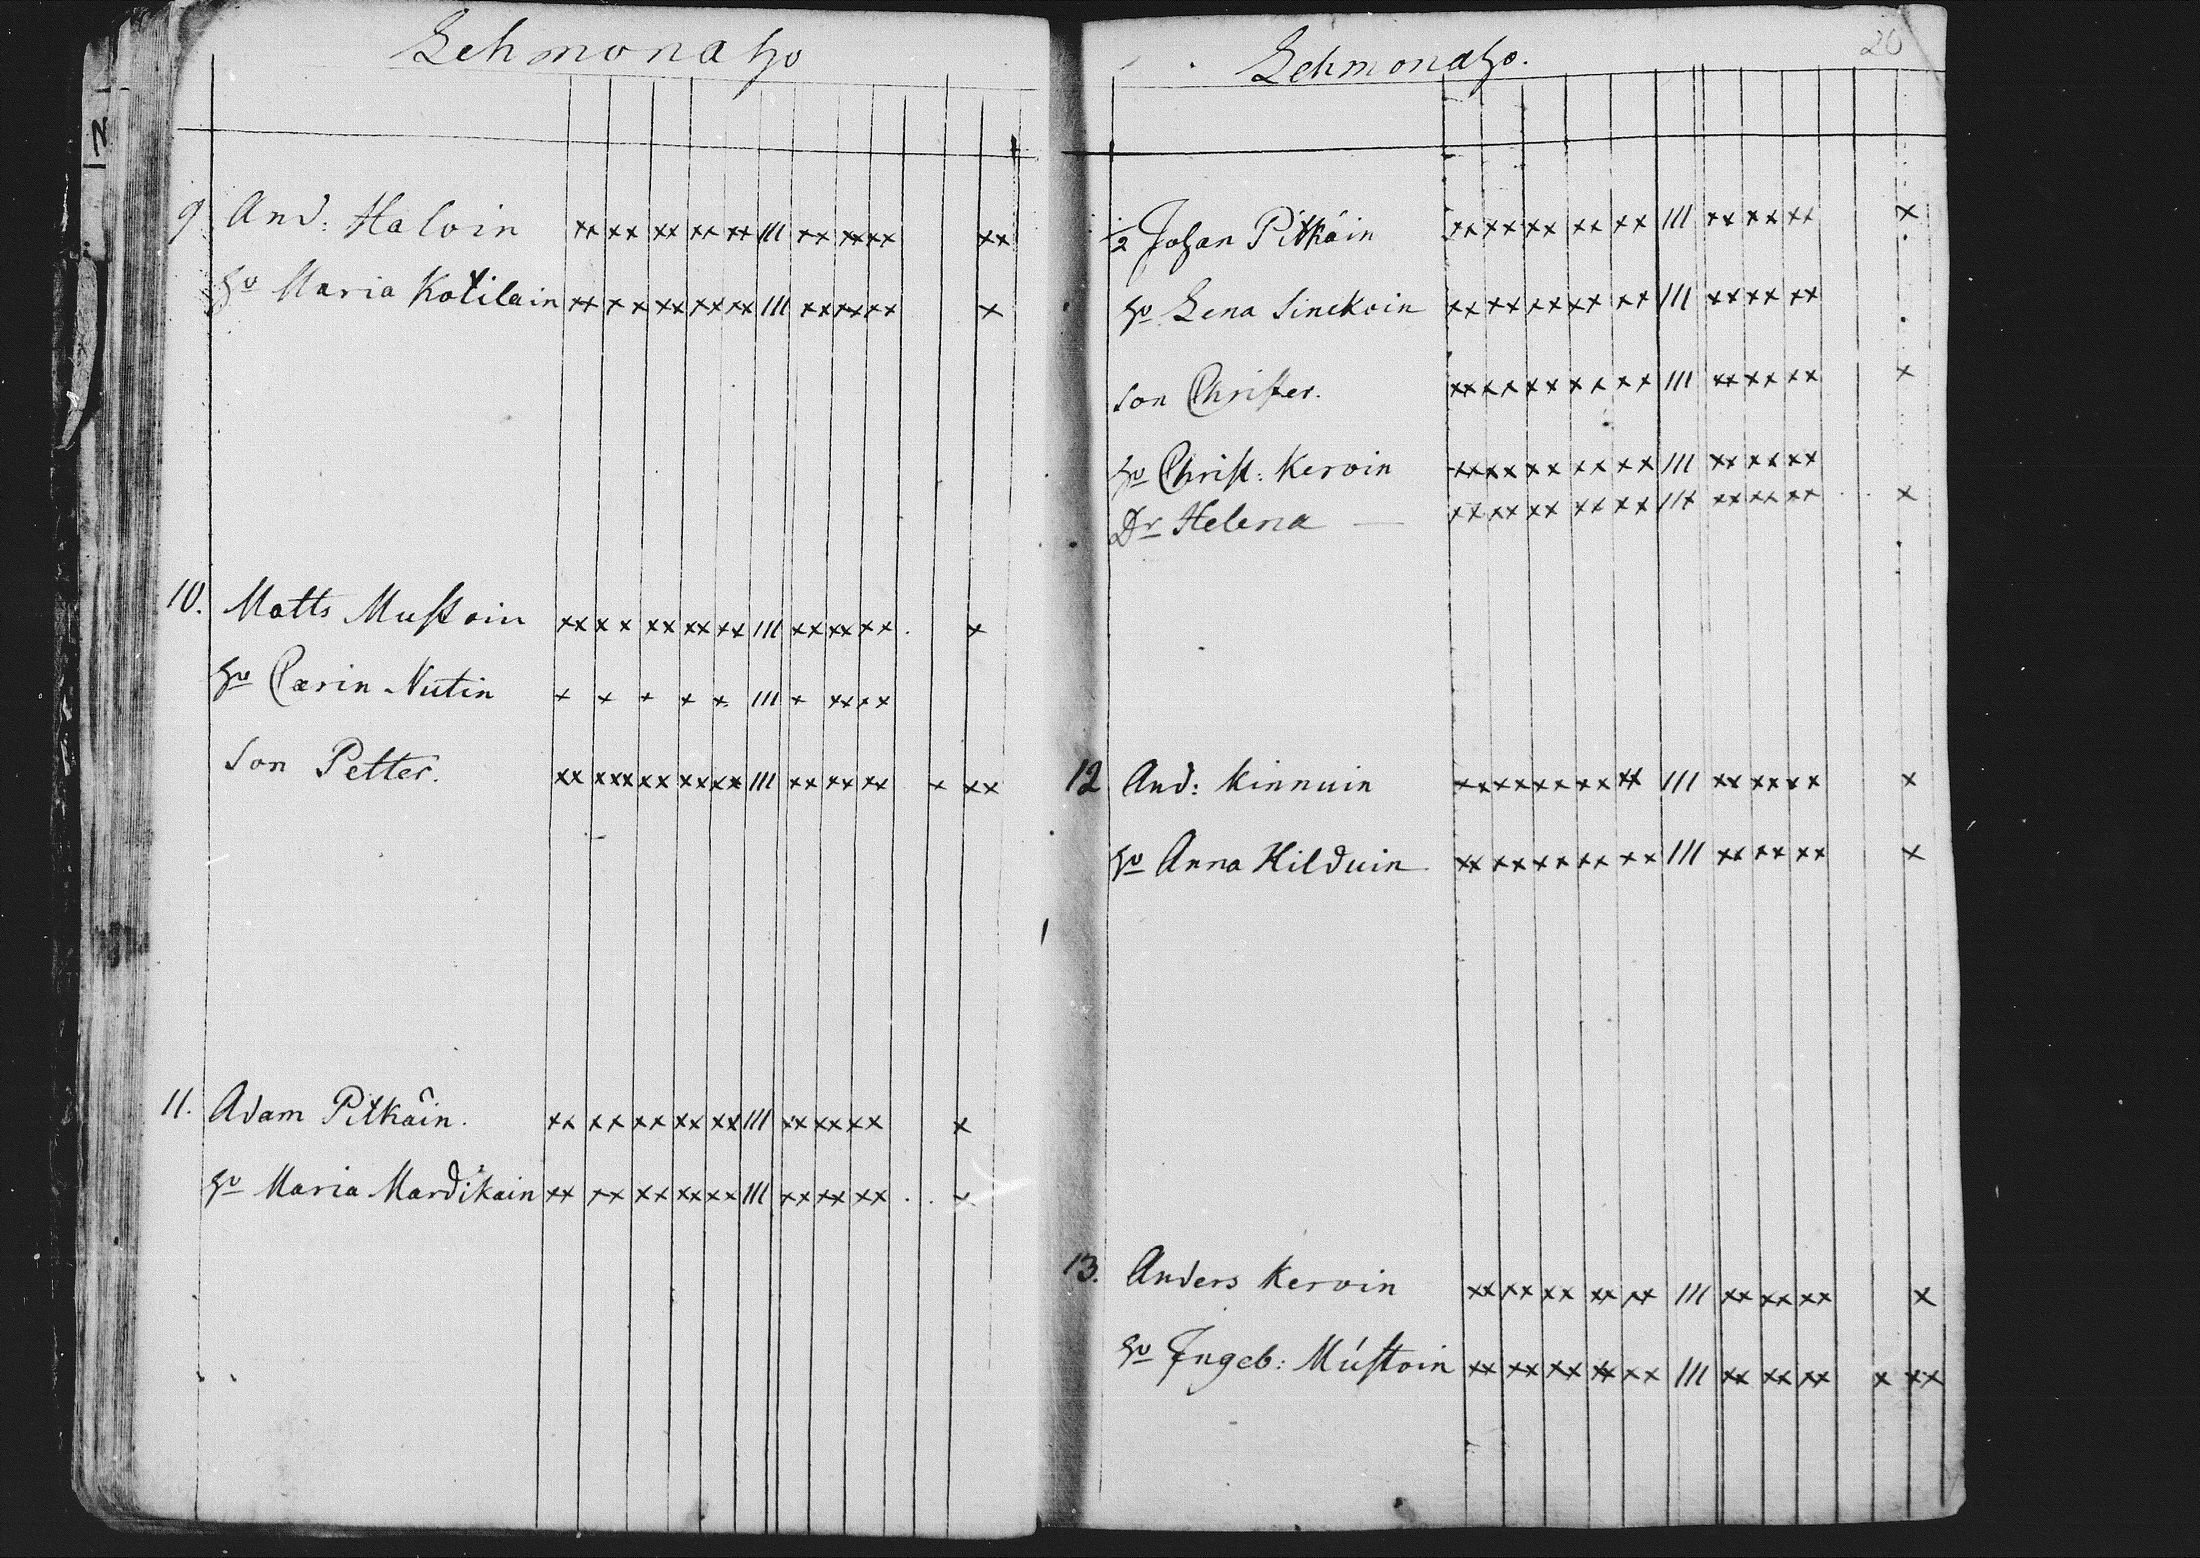 Lehmonaho
9 And: Halvin xx xx xx xx xx III xx xx xx xx
hu Maria Kotilain xx xx xx xx xx III xx xx xx x
10. Matts Mustoin xx xx xx xx xx III xx xx xx x
hu Carin Nutin x x x x x III x xx xx
Son Petter. xx xxx xx xx xx III xx xx xx x xx
11. Adam Pitkäin. xx xx xx xx xx III xx xx xx x
hu Maria Mardikain xx xx xx xx xx III xx xx xx x
Lehmonaho. 20
1/2 Johan Pitkäin xx xx xx xx xx III xx xx xx x
hu Lena Sinckoin xx xx xx xx xx III xx xx xx
Son Christer. xx xx xx xx xx III xx xx xx x
hu Christ: Kervin xx xx xx xx xx III xx xx xx
Dr Helena — xx xx xx xx xx III xx xx xx x
12 And: Kinnuin xx xx xx xx xx III xx xx xx x
hu Anna Hilduin xx xx xx xx xx III xx xx xx x
13. Anders Kervin xx xx xx xx xx III xx xx xx x
hu Ingeb: Mustoin xx xx xx xx xx III xx xx xx x xx